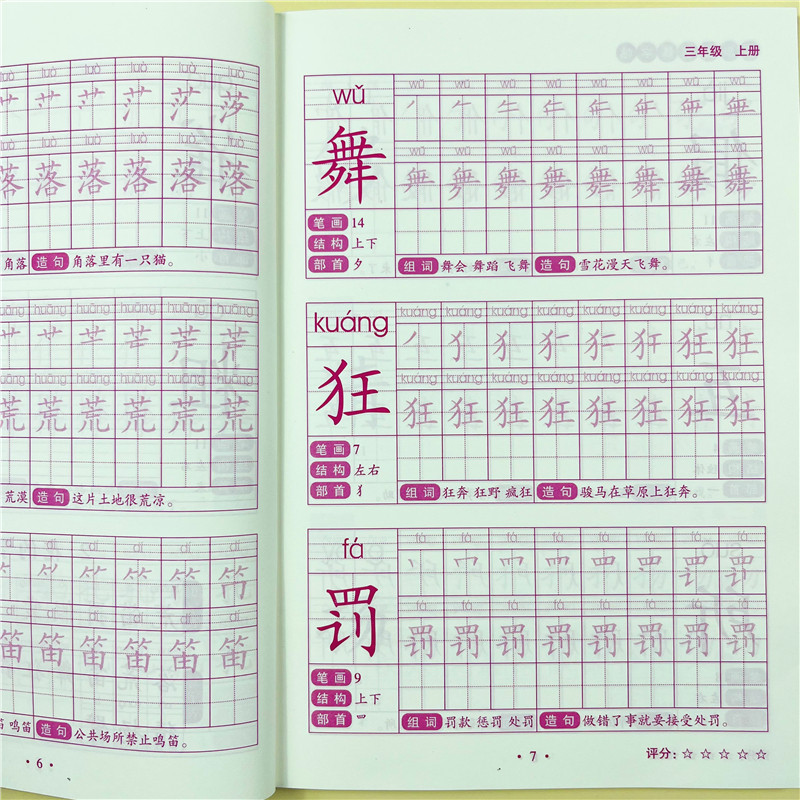 luò luò luò luò luò
luò luò luò luò luò luò
落 落 落 落 落 落
角落 造句 角落里有一只猫。
huāng huāng huāng huāng huāng
荒
huāng huāng huāng huāng huāng
荒 荒 荒 荒 荒 荒
荒漠 造句 这片土地很荒凉。
dí dí dí dí dí dí
dí dí dí dí dí dí
笛 笛 笛 笛 笛 笛
鸣笛 造句 公共场所禁止鸣笛。
· 6 ·
三年级 上册
wǔ
wǔ wǔ wǔ wǔ wǔ wǔ wǔ wǔ
舞
wǔ wǔ wǔ wǔ wǔ wǔ wǔ wǔ
舞 舞 舞 舞
笔画 14
结构 上下
部首 夕
组词 舞会 舞蹈 飞舞 造句 雪花漫天飞舞。
kuáng
kuáng kuáng kuáng kuáng kuáng kuáng kuáng kuáng
狂 狂
狂
kuáng kuáng kuáng kuáng kuáng kuáng kuáng kuáng
狂 狂 狂 狂 狂 狂 狂 狂
笔画 7
结构 左右
部首 犭
组词 狂奔 狂野 疯狂 造句 骏马在草原上狂奔。
fá
fá fá fá fá fá fá fá fá
罚
fá fá fá fá fá fá fá fá
罚 罚 罚 罚 罚 罚 罚 罚
笔画 9
结构 上下
部首 罒
组词 罚款 惩罚 处罚 造句 做错了事就要接受处罚。
· 7 ·
评分: ☆ ☆ ☆ ☆ ☆